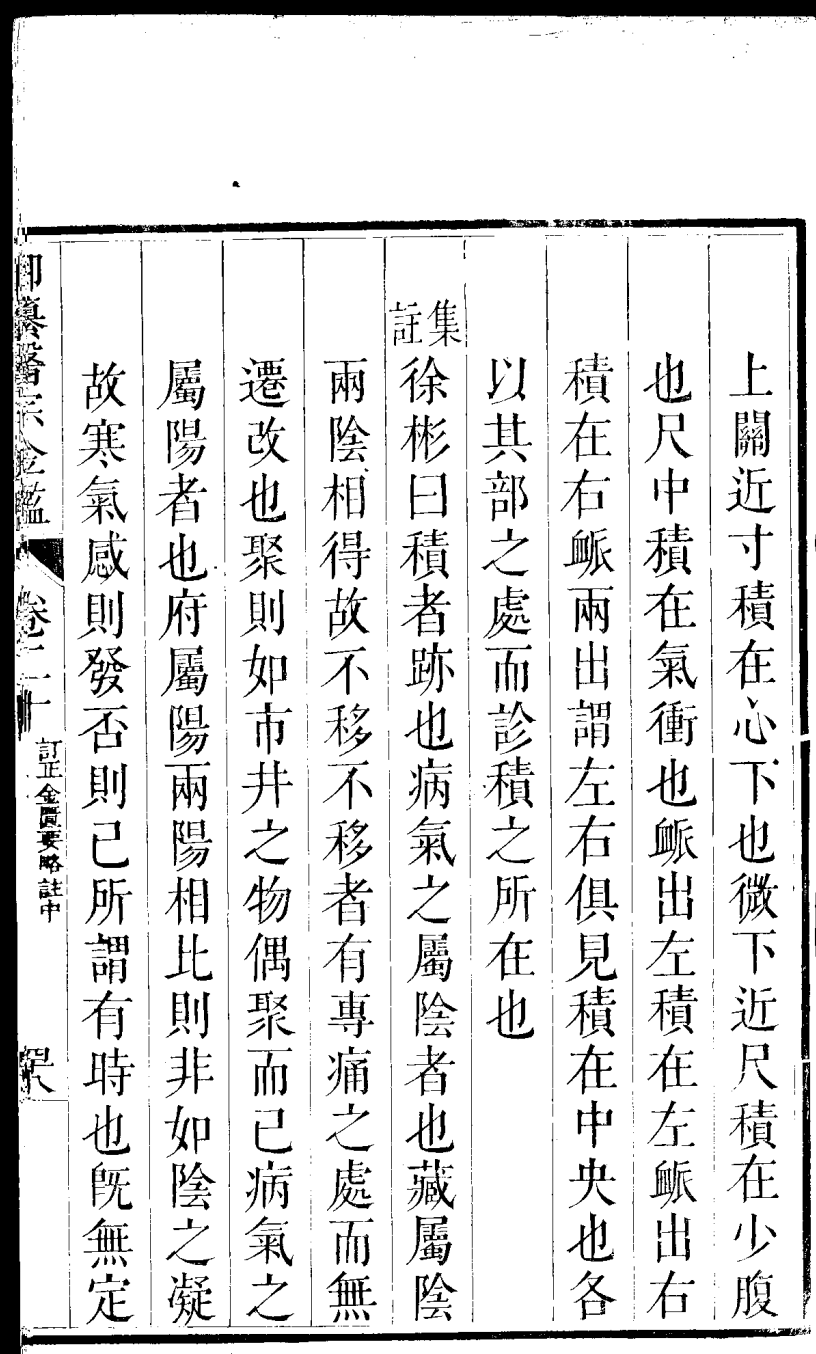 上關近寸積在心下也微下近尺積在少腹
也尺中積在氣衝也䘑出左積在左䘑出右
積在右䘑兩出謂左右俱見積在中央也各
以其部之處而診積之所在也
集註徐彬曰積者跡也病氣之屬陰者也藏屬陰
兩陰相得故不移不移者有專痛之處而無
遷改也聚則如市井之物偶聚而已病氣之
屬陽者也府屬陽兩陽相比則非如陰之凝
故寒氣感則發否則已所謂有時也旣無定
御纂醫宗金鑑 卷二十 訂正金匱要略註中